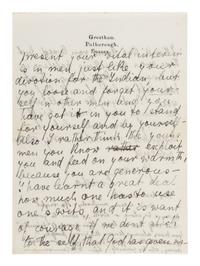 Greetham,
Pulborough,
Sussex.
present your vital interest
is in men just like your
devotion for the Indian, but
you lose and forget your-
self in other men and you
have got it in you to stand
for yourself and by yourself.
Also I rather think the young
men you know rather exploit
you and feed on your warmth,
because you are generous-
I have learnt a great deal
how much one has to use
one's wits, and it is want
of courage if we don't
to the self, that God has given us